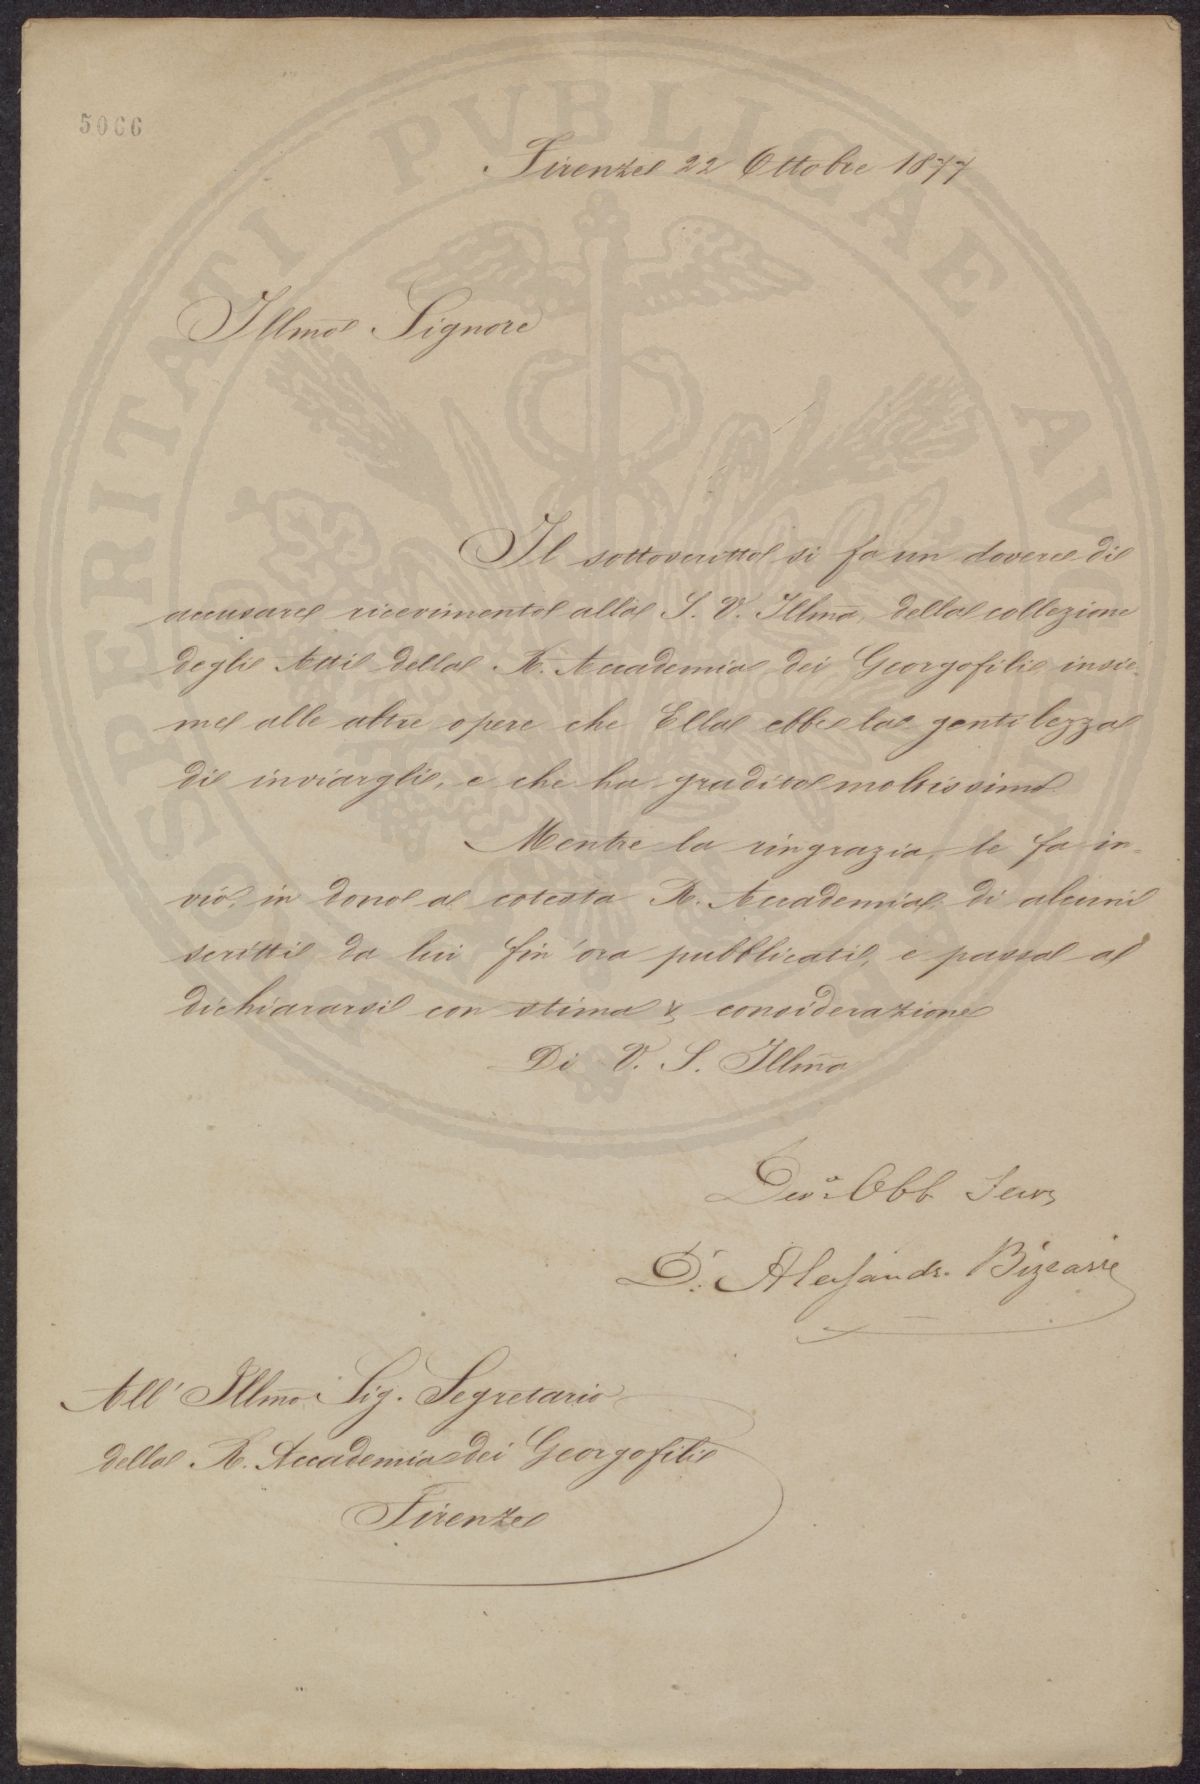 5066
PROSPERITATI PVBLICAE AVGENDAE
Firenze 22 Ottobre 1877
Illmo Signore
Il sottoscritto si fa un dovere di
accusare ricevimento alla S. V. Illma, della collezione
degli Atti della R. Accademia dei Georgofili insie-
me alle altre opere che Ella ebbe la gentilezza
di inviargli, e che ha gradito moltissimo
Mentre la ringrazia, le fa in-
vio, in dono a cotesta R. Accademia, di alcuni
scritti da lui fin'ora pubblicati, e passa a
dichiararsi con stima & considerazione
Di V. S. Illma
Devo Obb Serv
Dr. Alessandro Bizzarri
All' Illmo Sig. Segretario
della R. Accademia dei Georgofili
Firenze